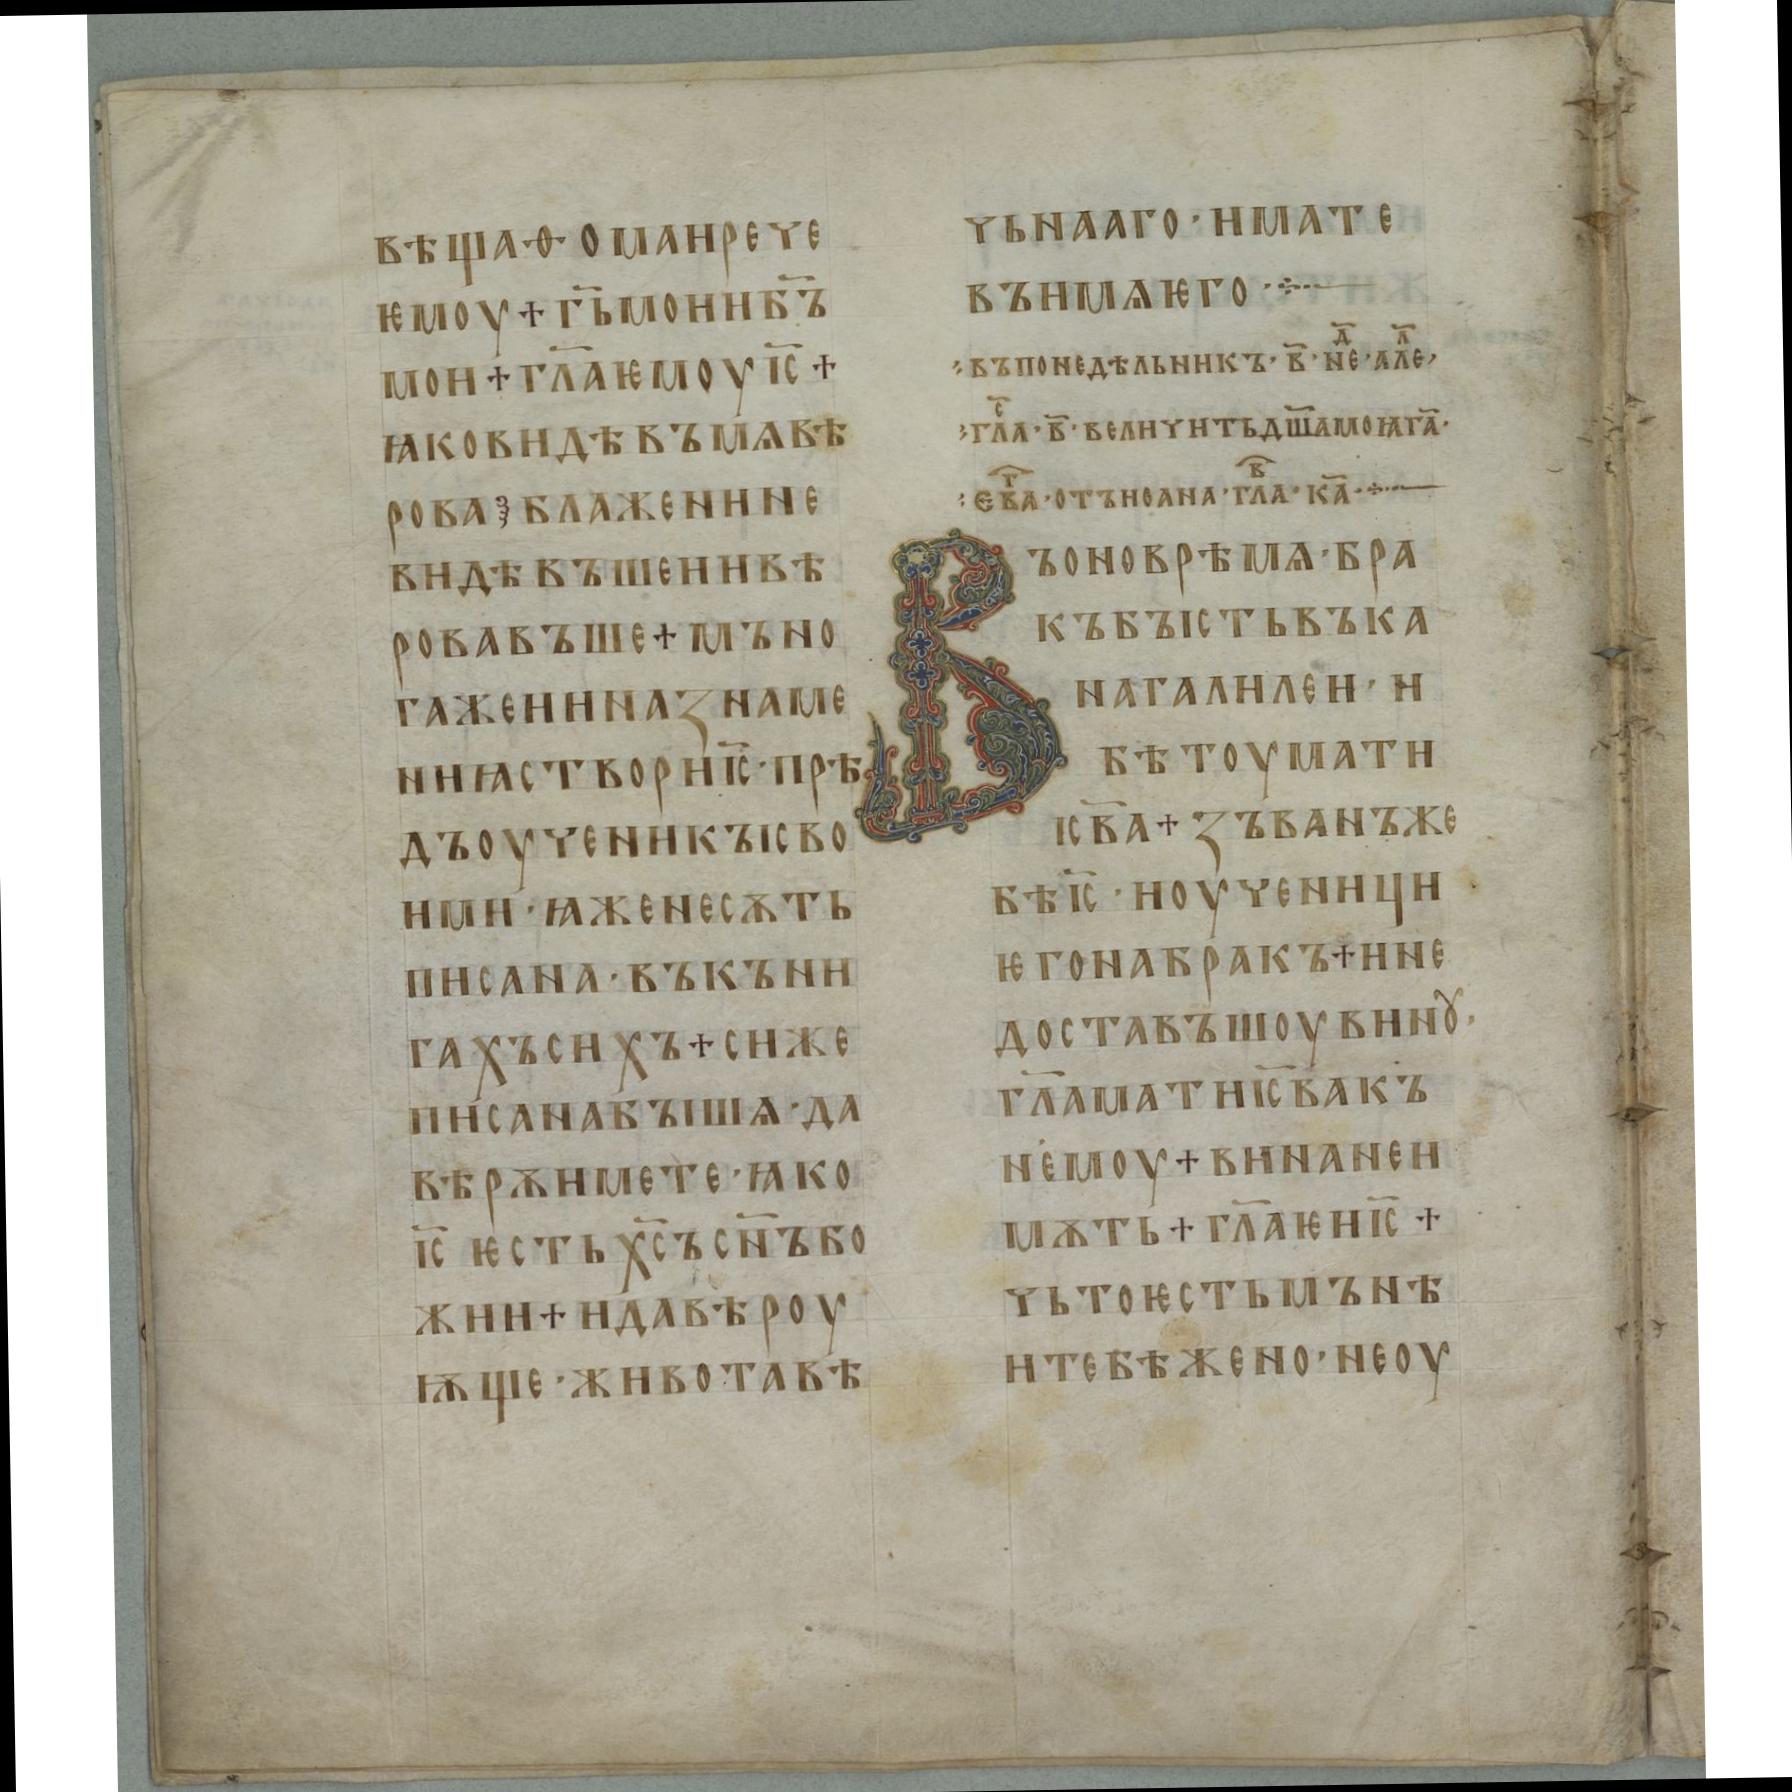 вѣща·ѳ·ѳомаирече
ѥмоу+г҃ьмоииб҃ъ
мои+гл҃аѥмоуіс҃+
ꙗковидѣвъмѧвѣ
роваꙁблажениине
видѣвъшеиивѣ
ровавъше+мъно
гажеиинаꙁнаме
ниꙗстворииіс҃·прѣ
дъоученикъісво
ими·ꙗженесѫть
писана·въкъни
гахъсихъ+сиже
писанабъішѧ·да
вѣрѫимете·ꙗко
іс҃ ѥстьхс҃ъсн҃ъбо
жии+идавѣроу
ѭще·животавѣ
чьнааго·имате
вънмѧѥго·
въпонедѣльникъ·в҃·неⷣ·алеⷧ
глаⷭ·в҃·величитьдш҃амоꙗга҃·
еваⷢ·отъиоана·глаⷡ·ка҃·
Въоноврѣмѧ·бра
къбъістьвъка
нагалилеи·и
бѣтоумати
ісв҃а+ꙁъванъже
бѣіс҃·иоученици
ѥгонабракъ+ине
доставъшоувинꙋ·
гл҃аматиіс҃вакъ
немоу+винанеи
мѫть+гл҃аѥиіс҃+
чьтоѥстьмънѣ
итебѣжено·неоу